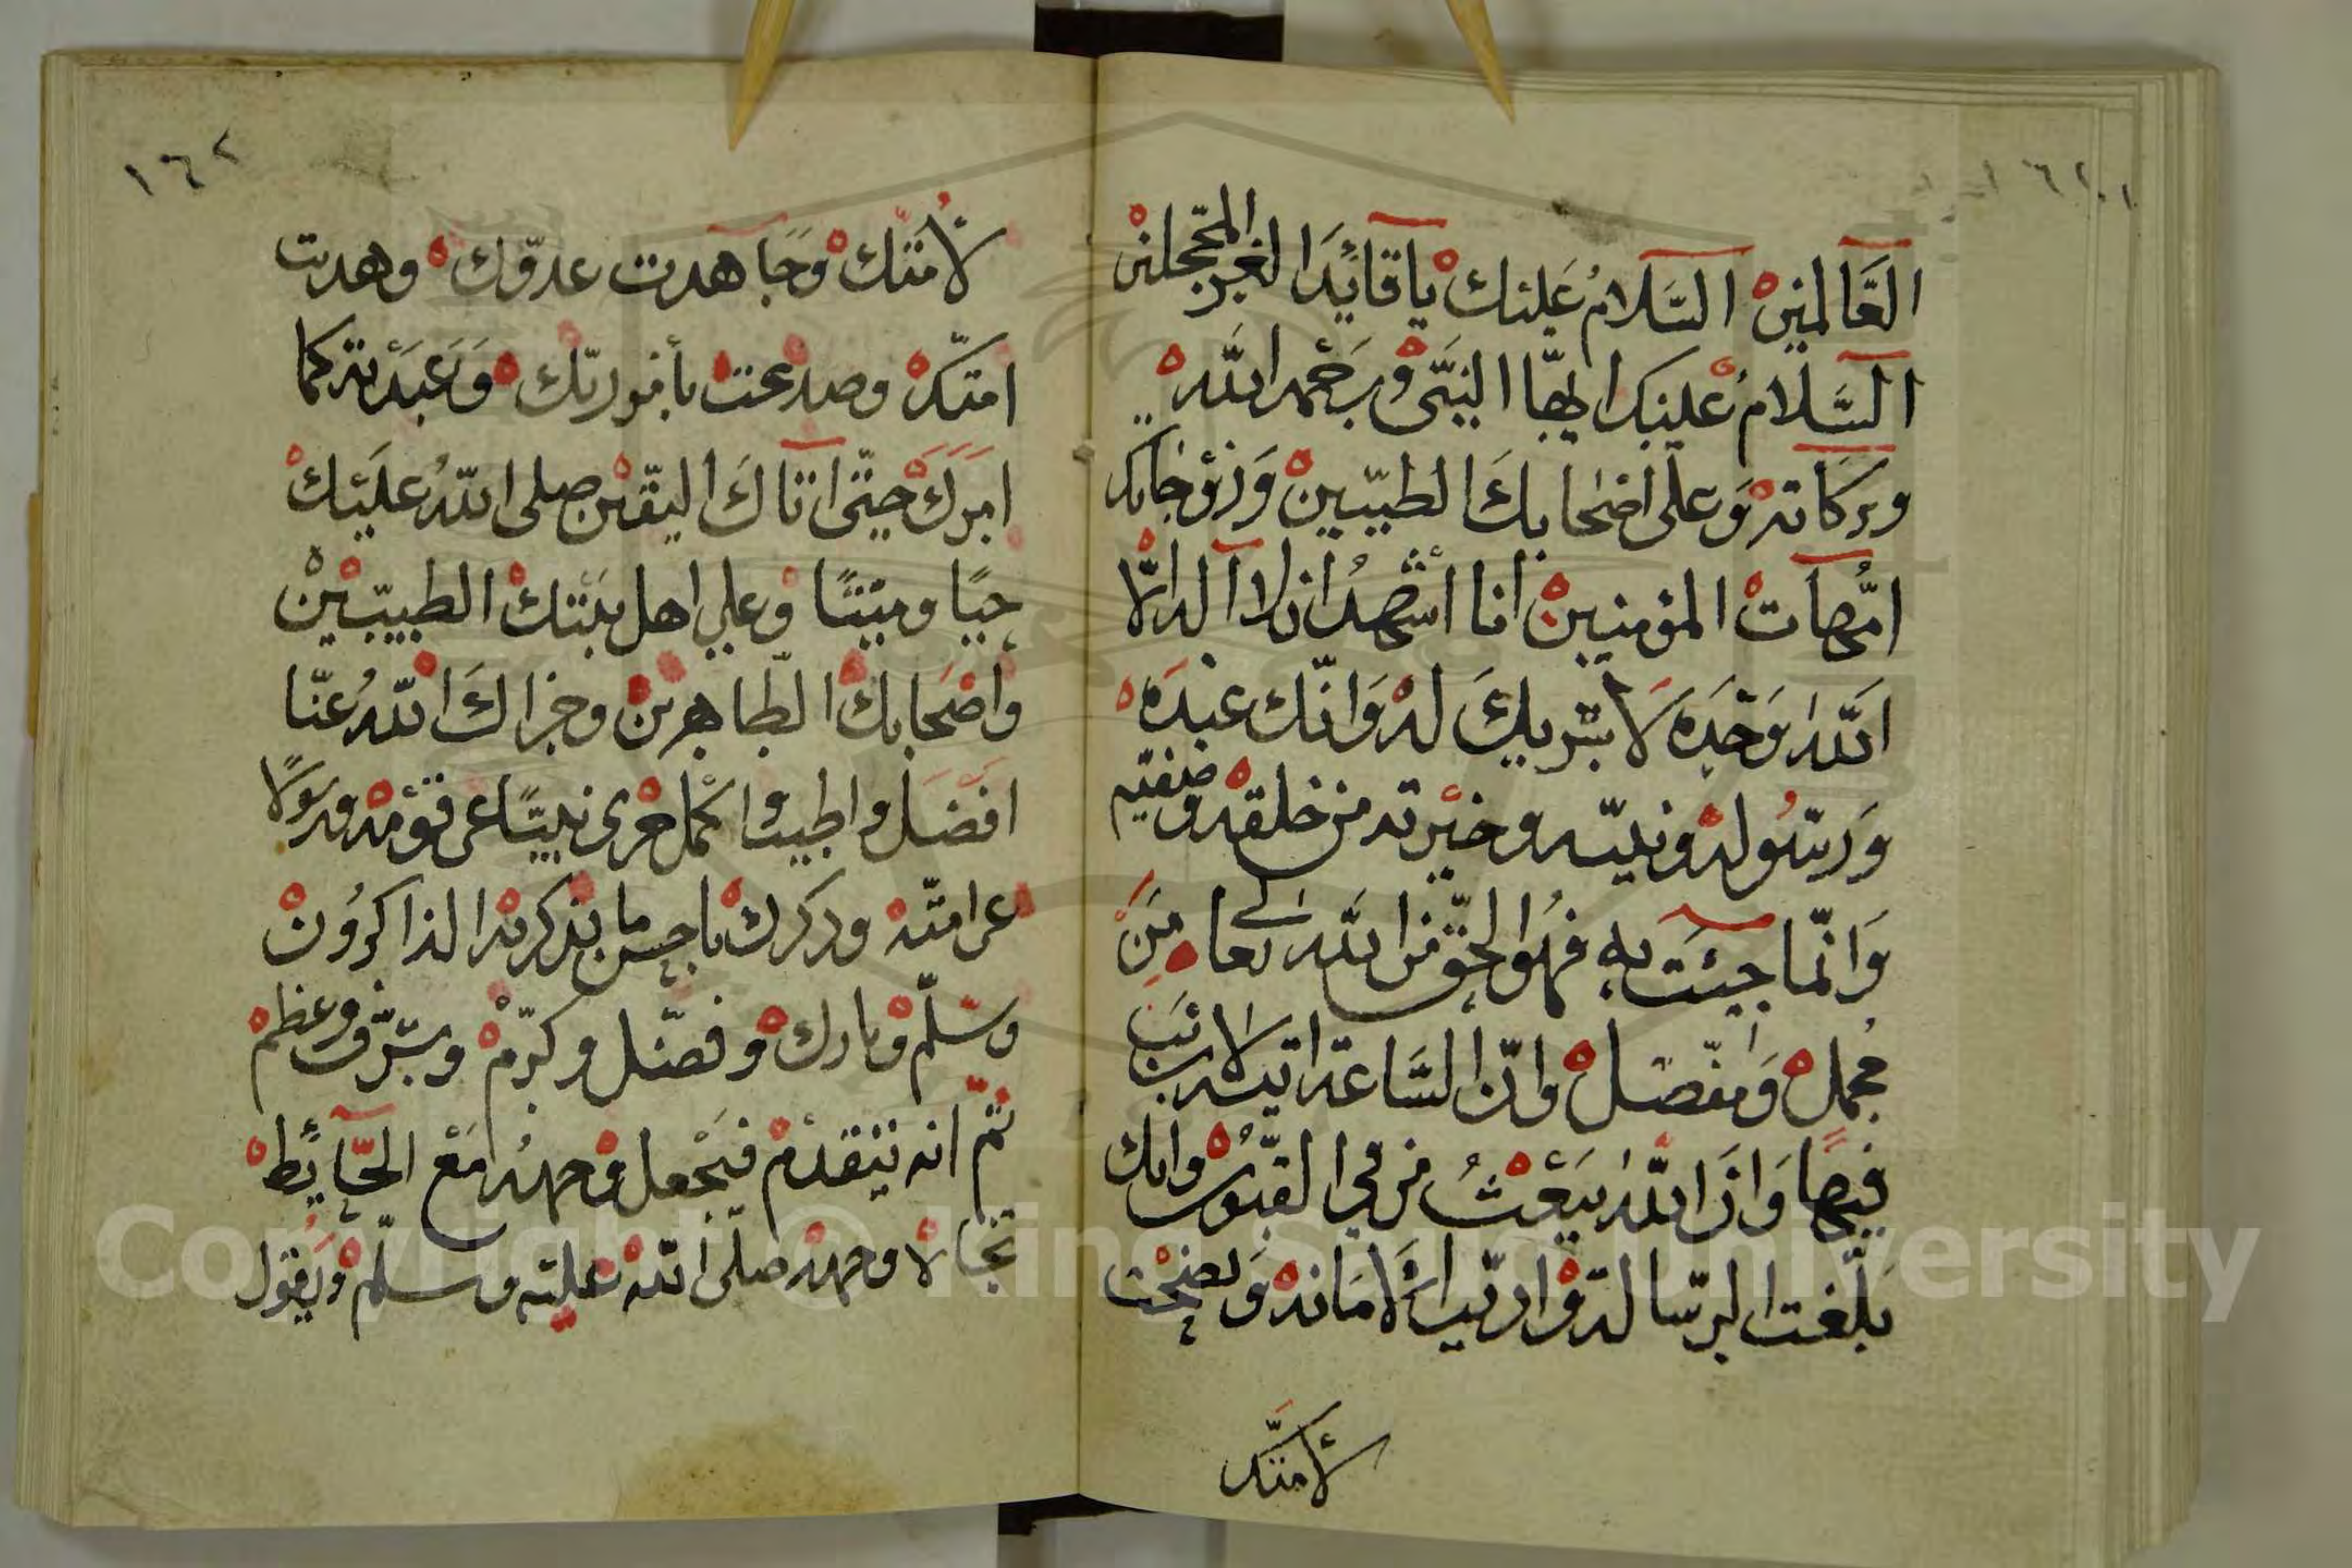 العالمين السلام عليك يا قائدا لغر المحجلين
السلام عليك ايها النبي ورحمة الله
وبركاته وعلى اصحابك الطيبين وزوجاتك
امهات المؤمنين انا أشهد ان لا اله الا
الله وحده لا شريك له وانك عبده
ورسوله ونبيه وخيرته من خلقه وصفيه
وانما جيت به فهو الحق من الله تعالى من
مجمل ومفصل وان الساعة اتيه لا ريب
فيها وان الله يبعث من في القبور وانك
بلغت الرسالة واديت الامانه ونصحت
لامتك
١٦٢
لامتك وجاهدت عدوك وهديت
امتك وصدعت بأمر ربك وعبدته كما
امرك حتى اتاك اليقين صلى الله عليك
حيا وميتا وعلي اهل بيتك الطيبين
واصحابك الطاهرين وجزاك الله عنا
افضل واطيب واكمل جزى نبيا عن قومه ورسولا
عن امته وذكرك باحسن ما يذكر به الذاكرون
وسلم وبارك وفضل وكرم وشرف وعظم
ثم انه يتقدم فيجعل وجهه مع الحائط
تجالا وجهه صلى الله عليه وسلم ويقول
Copyright © King Saud University